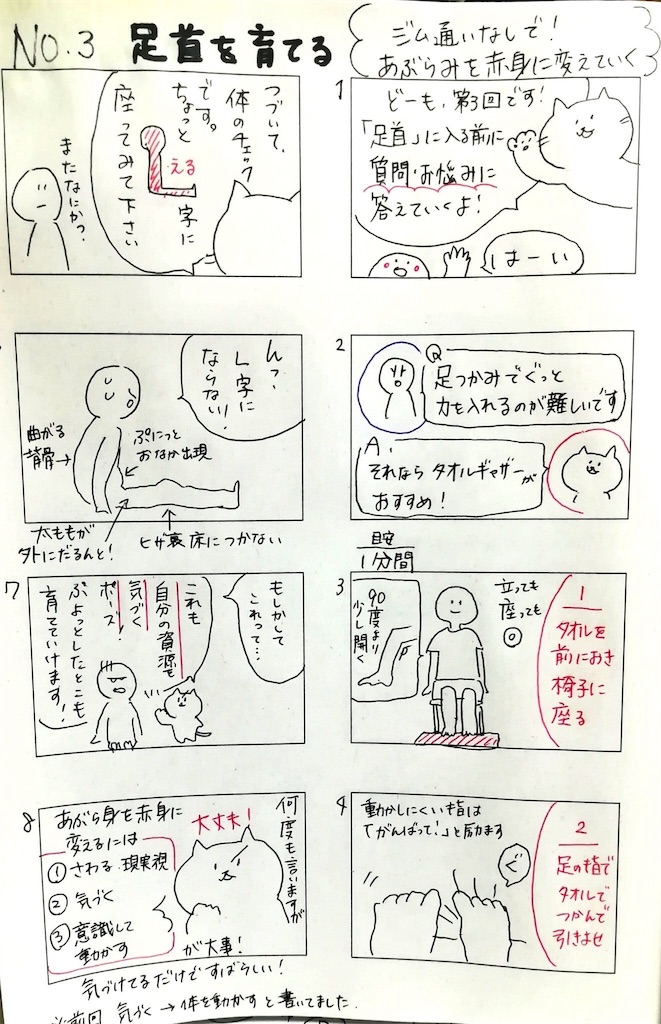 NO.3 足首を育てる
ジム通いなしで！
あぶらみを赤身に変えていく
1
どーも、第3回です！
「足首」に入る前に
質問・お悩みに
答えていくよ！
はーい
2
Q
足つかみでぐっと
力を入れるのが難しいです
A.
それなら タオルギャザーが
おすすめ！
目安
1分間
3
90度より
少し開く
立っても
座っても
◎
1
タオルを
前におき
椅子に
座る
4
動かしにくい指は
「がんばって！」と励ます
ぐ
2
足の指で
タオルで
つかんで
引きよせ
つづいて、
体のチェック
です。
ちょっと
える
字に
座ってみて下さい
またなにか？
んっ、
L字に
ならない！
曲がる
背骨→
ぷにっと
おなか出現
太ももが
外にだるんと！
ヒザ裏 床につかない
7
もしかして
これって…
これも
自分の資源を
気づく
ポーズ！
ぷよっとしたとこも
育てていけます！
8
あがら身を赤身に
変えるには
① さわる・現実視
② 気づく
③ 意識して
動かす
大丈夫！
何度も言いますが
が大事！
気づけてるだけですばらしい！
前回 気づく→体を動かすと書いてました